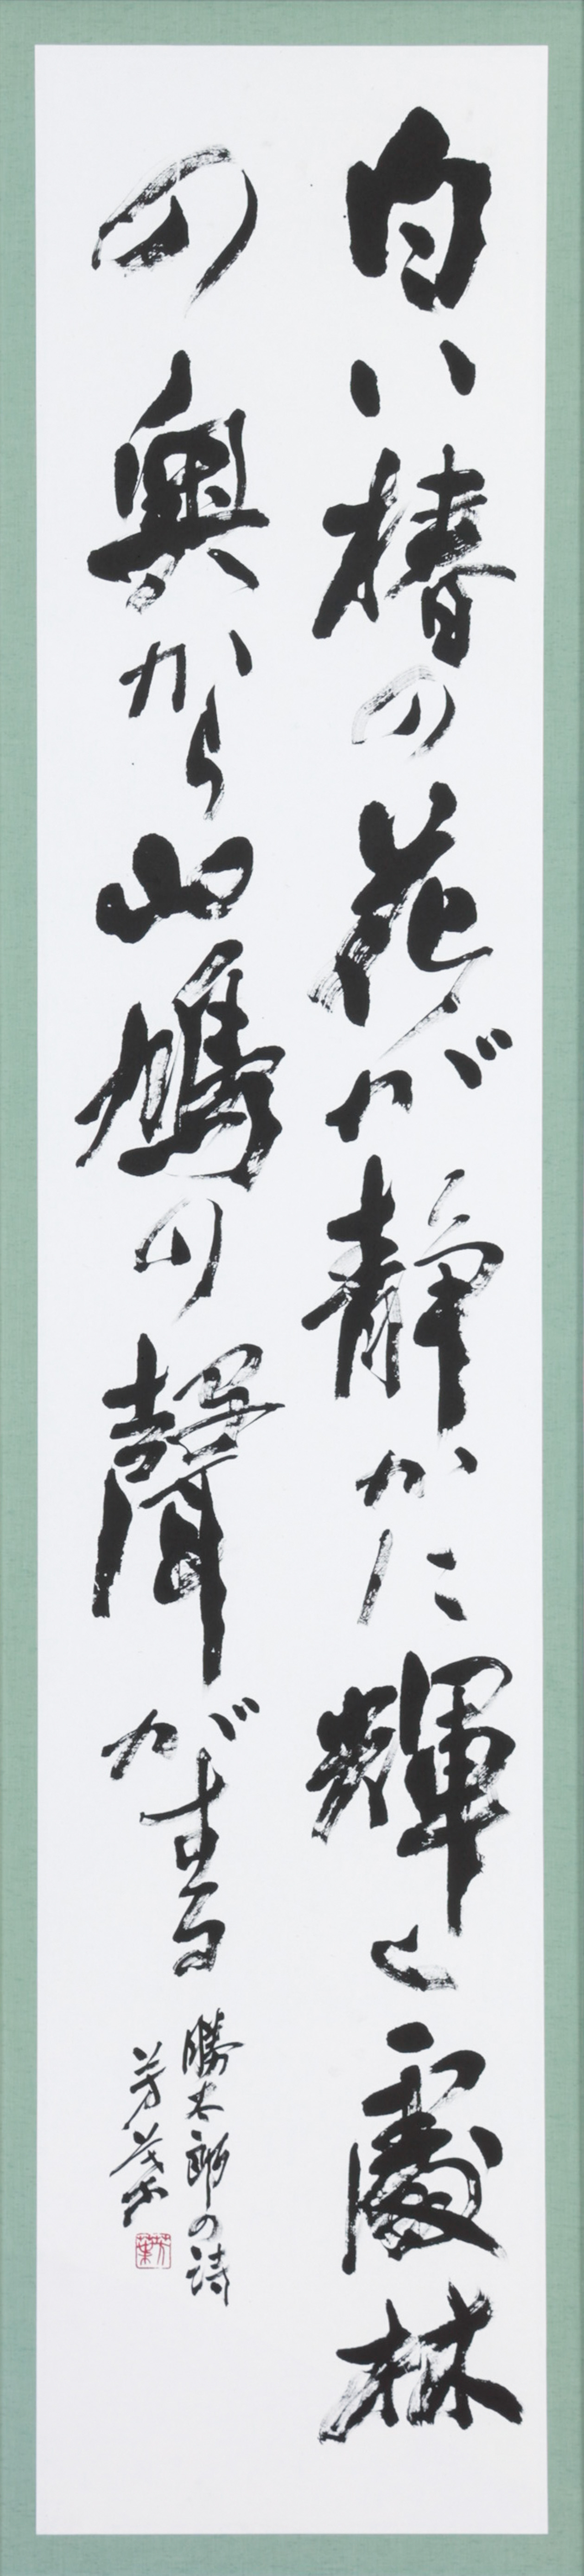 白い椿の花が静かに輝處林
の奥から山鳩の聲がする
勝太郎の詩
芳葉
芳葉